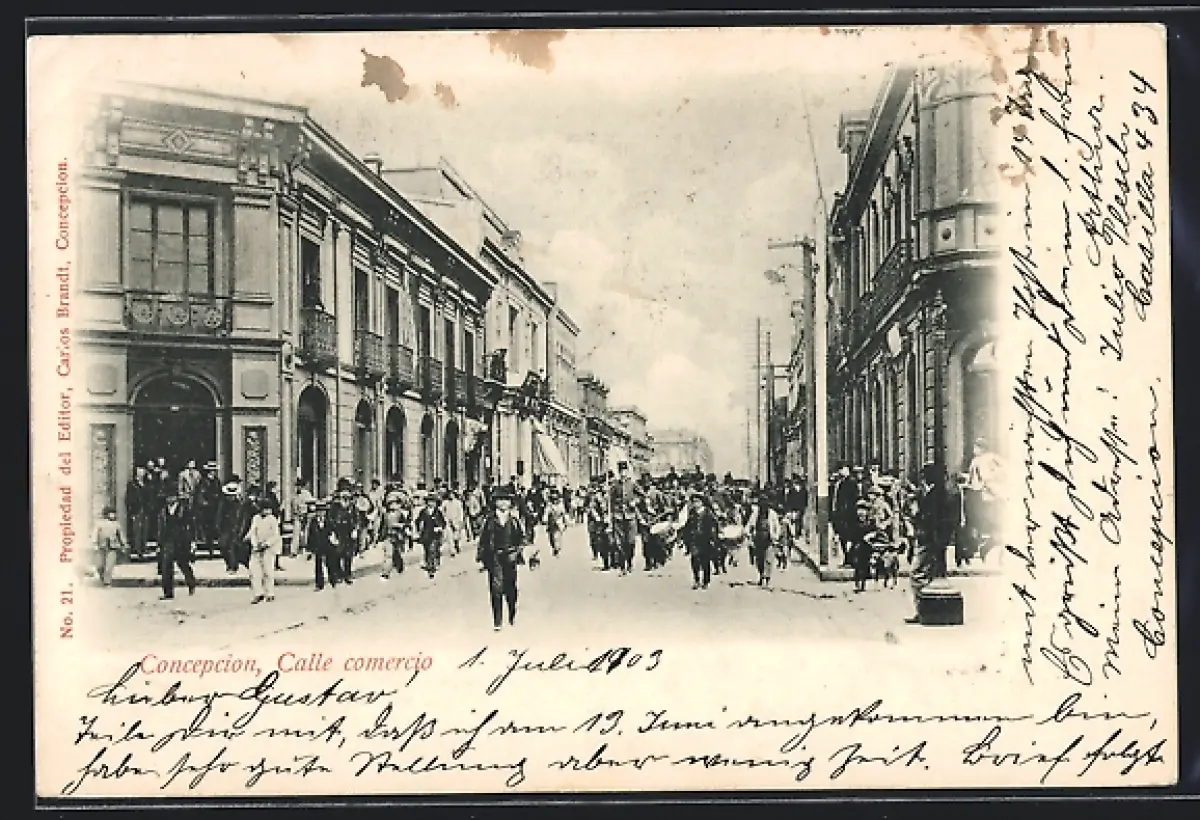 No. 21. Propiedad del Editor, Carlos Brandt, Concepcion.
Concepcion, Calle comercio
1. Juli 1903
Lieber Gustav!
Teile Dir mit, daß ich am 13. Juni angekommen bin,
habe sehr gute Stellung aber wenig Zeit. Brief folgt
mit der nächsten Post
Es grüßt Dich und Deine l.
Meine Adresse! Julio
Casilla 434
Concepcion.